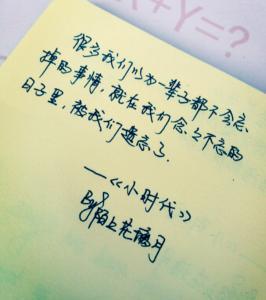 X+Y=?
很多我们以为一辈子都不会忘
掉的事情，就在我们念念不忘的
日子里，被我们遗忘了.
——《小时代》
By：陌上花漓月